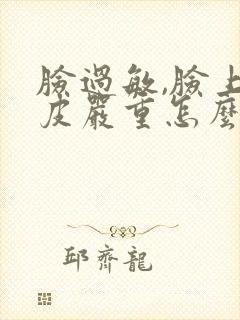 臉過敏,臉上
皮嚴重怎麼
邱齊龍